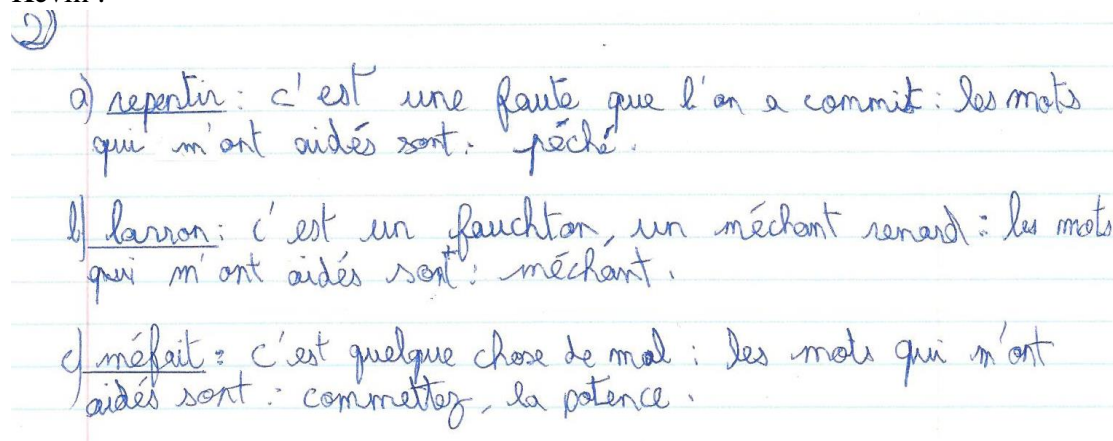 Kévin :
2)
a) repentir : c'est une faute que l'on a commit : les mots
qui m'ont aidés sont : péché.
b) larron : c'est un fauchton, un méchant renard : les mots
qui m'ont aidés sont : méchant.
c) méfait : c'est quelque chose de mal : les mots qui m'ont
aidés sont : commettez, la potence.